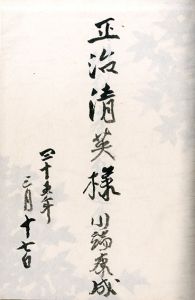 正治清英様 川端康成
四十五年
二月十七日